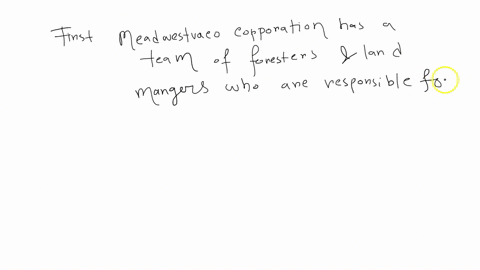 First Meadwestvaco copporation has a
team of foresters & land
mangers who are responsible fo